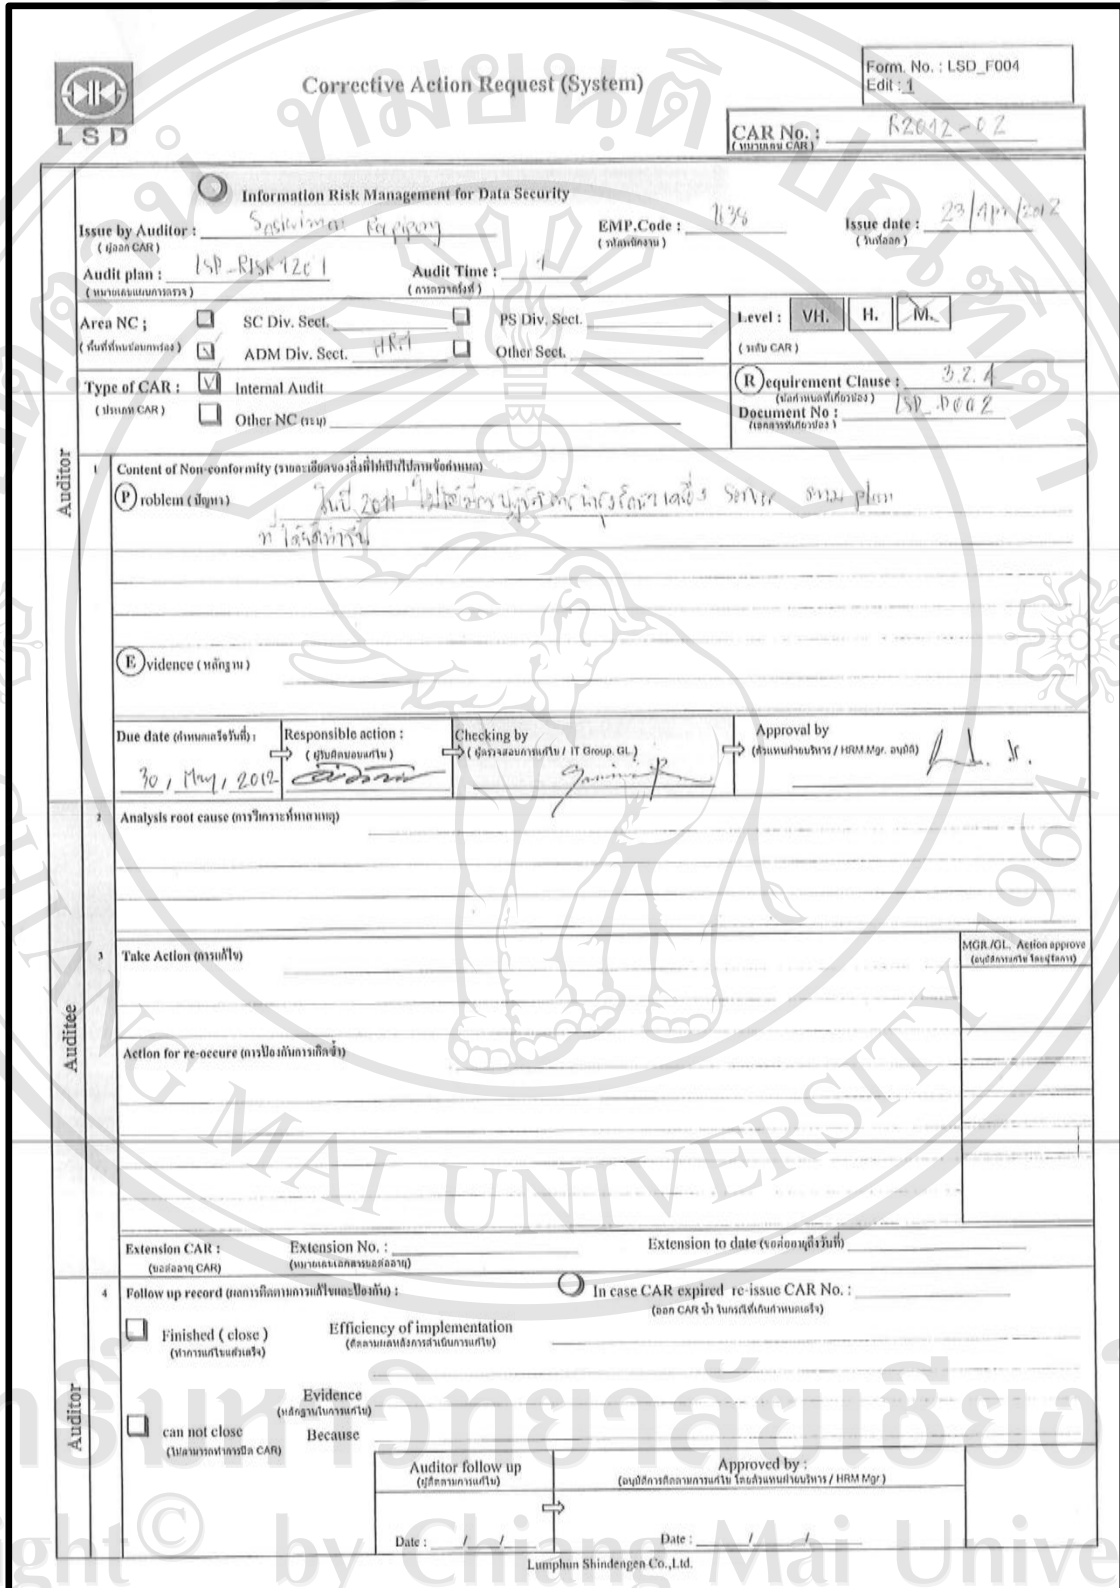 LSD
Corrective Action Request (System)
Form. No. : LSD_F004
Edit : 1
CAR No. : R2012-02
(หมายเลข CAR)
Information Risk Management for Data Security
Issue by Auditor :
(ผู้ออก CAR)
EMP.Code : 1138
(รหัสพนักงาน)
Issue date : 23/Apr/2012
(วันที่ออก)
Audit plan :
(หมายเลขแผนการตรวจ)
Audit Time : 1
(การตรวจครั้งที่)
Area NC ;
(พื้นที่ที่พบข้อบกพร่อง)
SC Div. Sect.
PS Div. Sect.
ADM Div. Sect. HRM
Other Sect.
Level : VH. H. M.
(ระดับ CAR)
Type of CAR :
(ประเภท CAR)
Internal Audit
Other NC (ระบุ)
Requirement Clause : 3.2.1
(ข้อกำหนดที่เกี่ยวข้อง)
Document No :
(เอกสารที่เกี่ยวข้อง)
Auditor
1 Content of Non-conformity (รายละเอียดของสิ่งที่ไม่เป็นไปตามข้อกำหนด)
Problem (ปัญหา)
ในปี 2011 ไม่ได้มีการปฏิบัติการบำรุงรักษาเครื่อง Server ตาม plan
ที่ได้จัดทำขึ้น
Evidence (หลักฐาน)
Due date (กำหนดเสร็จวันที่) :
30, May, 2012
Responsible action :
(ผู้รับผิดชอบแก้ไข)
Checking by
(ผู้ตรวจสอบการแก้ไข / IT Group. GL.)
Approval by
(ตัวแทนฝ่ายบริหาร / HRM.Mgr. อนุมัติ)
Auditee
2 Analysis root cause (การวิเคราะห์หาสาเหตุ)
3 Take Action (การแก้ไข)
MGR./GL. Action approve
(อนุมัติการแก้ไข โดยผู้จัดการ)
Action for re-occure (การป้องกันการเกิดซ้ำ)
Extension CAR :
(ขอต่ออายุ CAR)
Extension No. :
(หมายเลขเอกสารขอต่ออายุ)
Extension to date (ขอต่ออายุถึงวันที่)
Auditor
4 Follow up record (ผลการติดตามการแก้ไขและป้องกัน) :
In case CAR expired re-issue CAR No. :
(ออก CAR ซ้ำ ในกรณีที่เกินกำหนดเสร็จ)
Finished ( close )
(ทำการแก้ไขแล้วเสร็จ)
Efficiency of implementation
(ติดตามผลหลังการดำเนินการแก้ไข)
Evidence
(หลักฐานในการแก้ไข)
can not close
(ไม่สามารถทำการปิด CAR)
Because
Auditor follow up
(ผู้ติดตามการแก้ไข)
Approved by :
(อนุมัติการติดตามการแก้ไข โดยตัวแทนฝ่ายบริหาร / HRM Mgr)
Date : / /
Date : / /
Lumphun Shindengen Co.,Ltd.
CHIANG MAI UNIVERSITY 1964
by Chiang Mai Unive